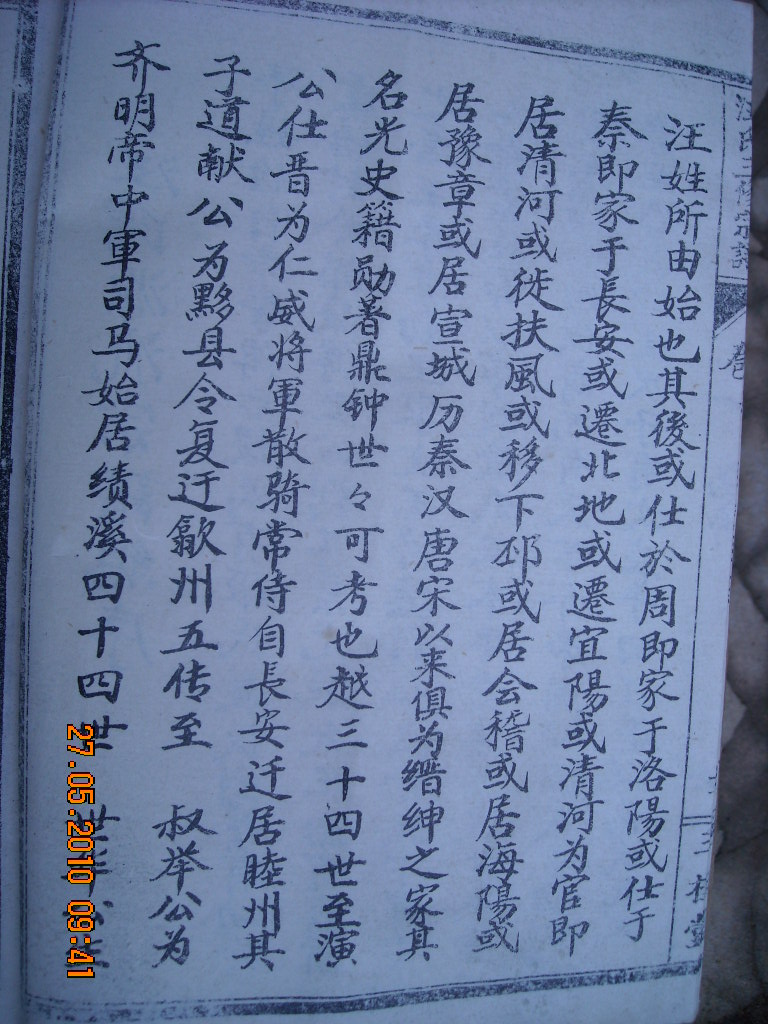 汪姓所由始也其後或仕於周即家于洛陽或仕于
秦即家于長安或遷北地或遷宜陽或清河为官即
居清河或徙扶風或移下邳或居会稽或居海陽或
居豫章或居宣城历秦汉唐宋以来俱为缙绅之家其
名光史籍勋著鼎钟世々可考也越三十四世至演
公仕晋为仁威将軍散骑常侍自長安迁居睦州其
子道献公为黟县令复迁歙州五传至 叔举公为
齐明帝中軍司马始居绩溪四十四世
27.05.2010 09:41